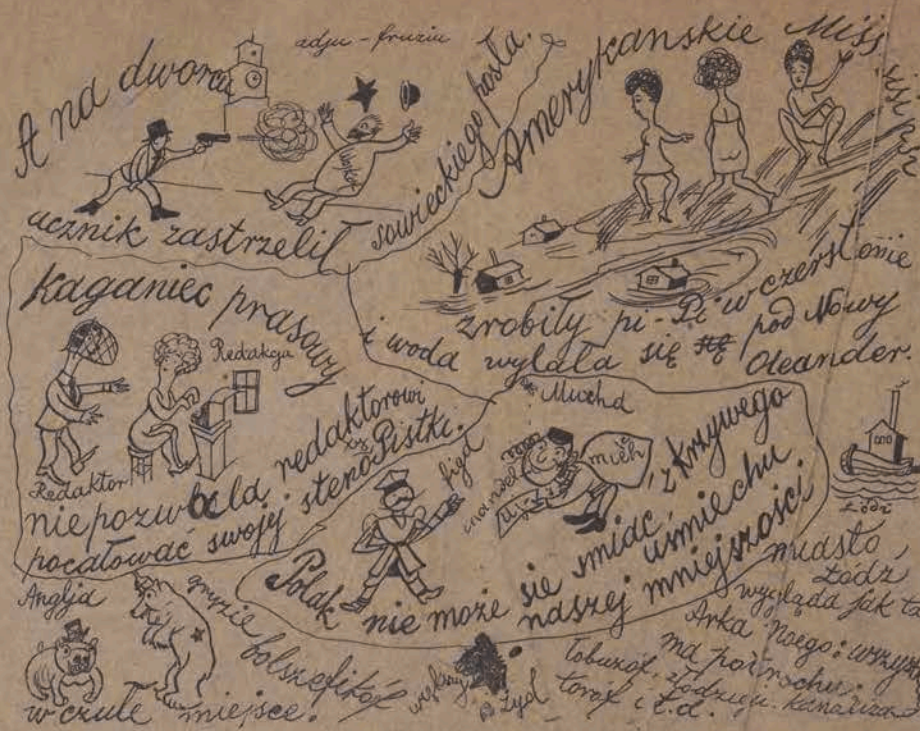 adju - fruziu
A na dworcu
ucznik zastrzelił
sowieckiego posła.
Amerykanskie Miss
zrobiły pi-Pi w czerstonie
i woda wylała się pod Nowy
Oleander.
Kaganiec prasowy
Redakcja
Redaktor
niepozwala redaktorowi
pocałować swojej stenoPistki.
Mucha
figa
mieh
Polak nie może się śmiać, z krzywego
uśmiechu
naszej mniejszości
Anglja
gryzie bolszefikóf
w czułe miejsce.
węglany
Żyd
Łódź
miasto,
Łódź
wygląda jak
Arka Noego:
ma po trochu:
łobuzóf, złodzieji.
toróf i t.d.